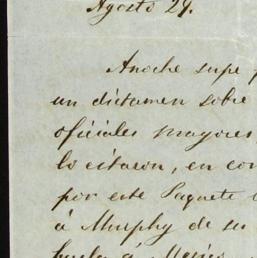 Agosto 29.
Anoche supe
un dictamen sobre
oficiales mayores
lo estaron, en con
por este Paquete
á Murphy de su